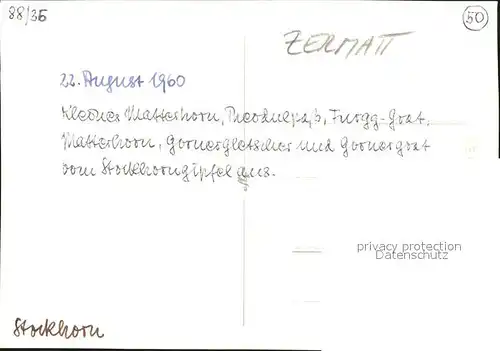 88/3б
50
ZERMATT
22. August 1960
Kleines Matterhorn, Theodulpaß, Furgg-Grat,
Matterhorn, Gornergletscher und Gornergrat
vom Stockhorngipfel aus.
privacy protection
Datenschutz
Stockhorn